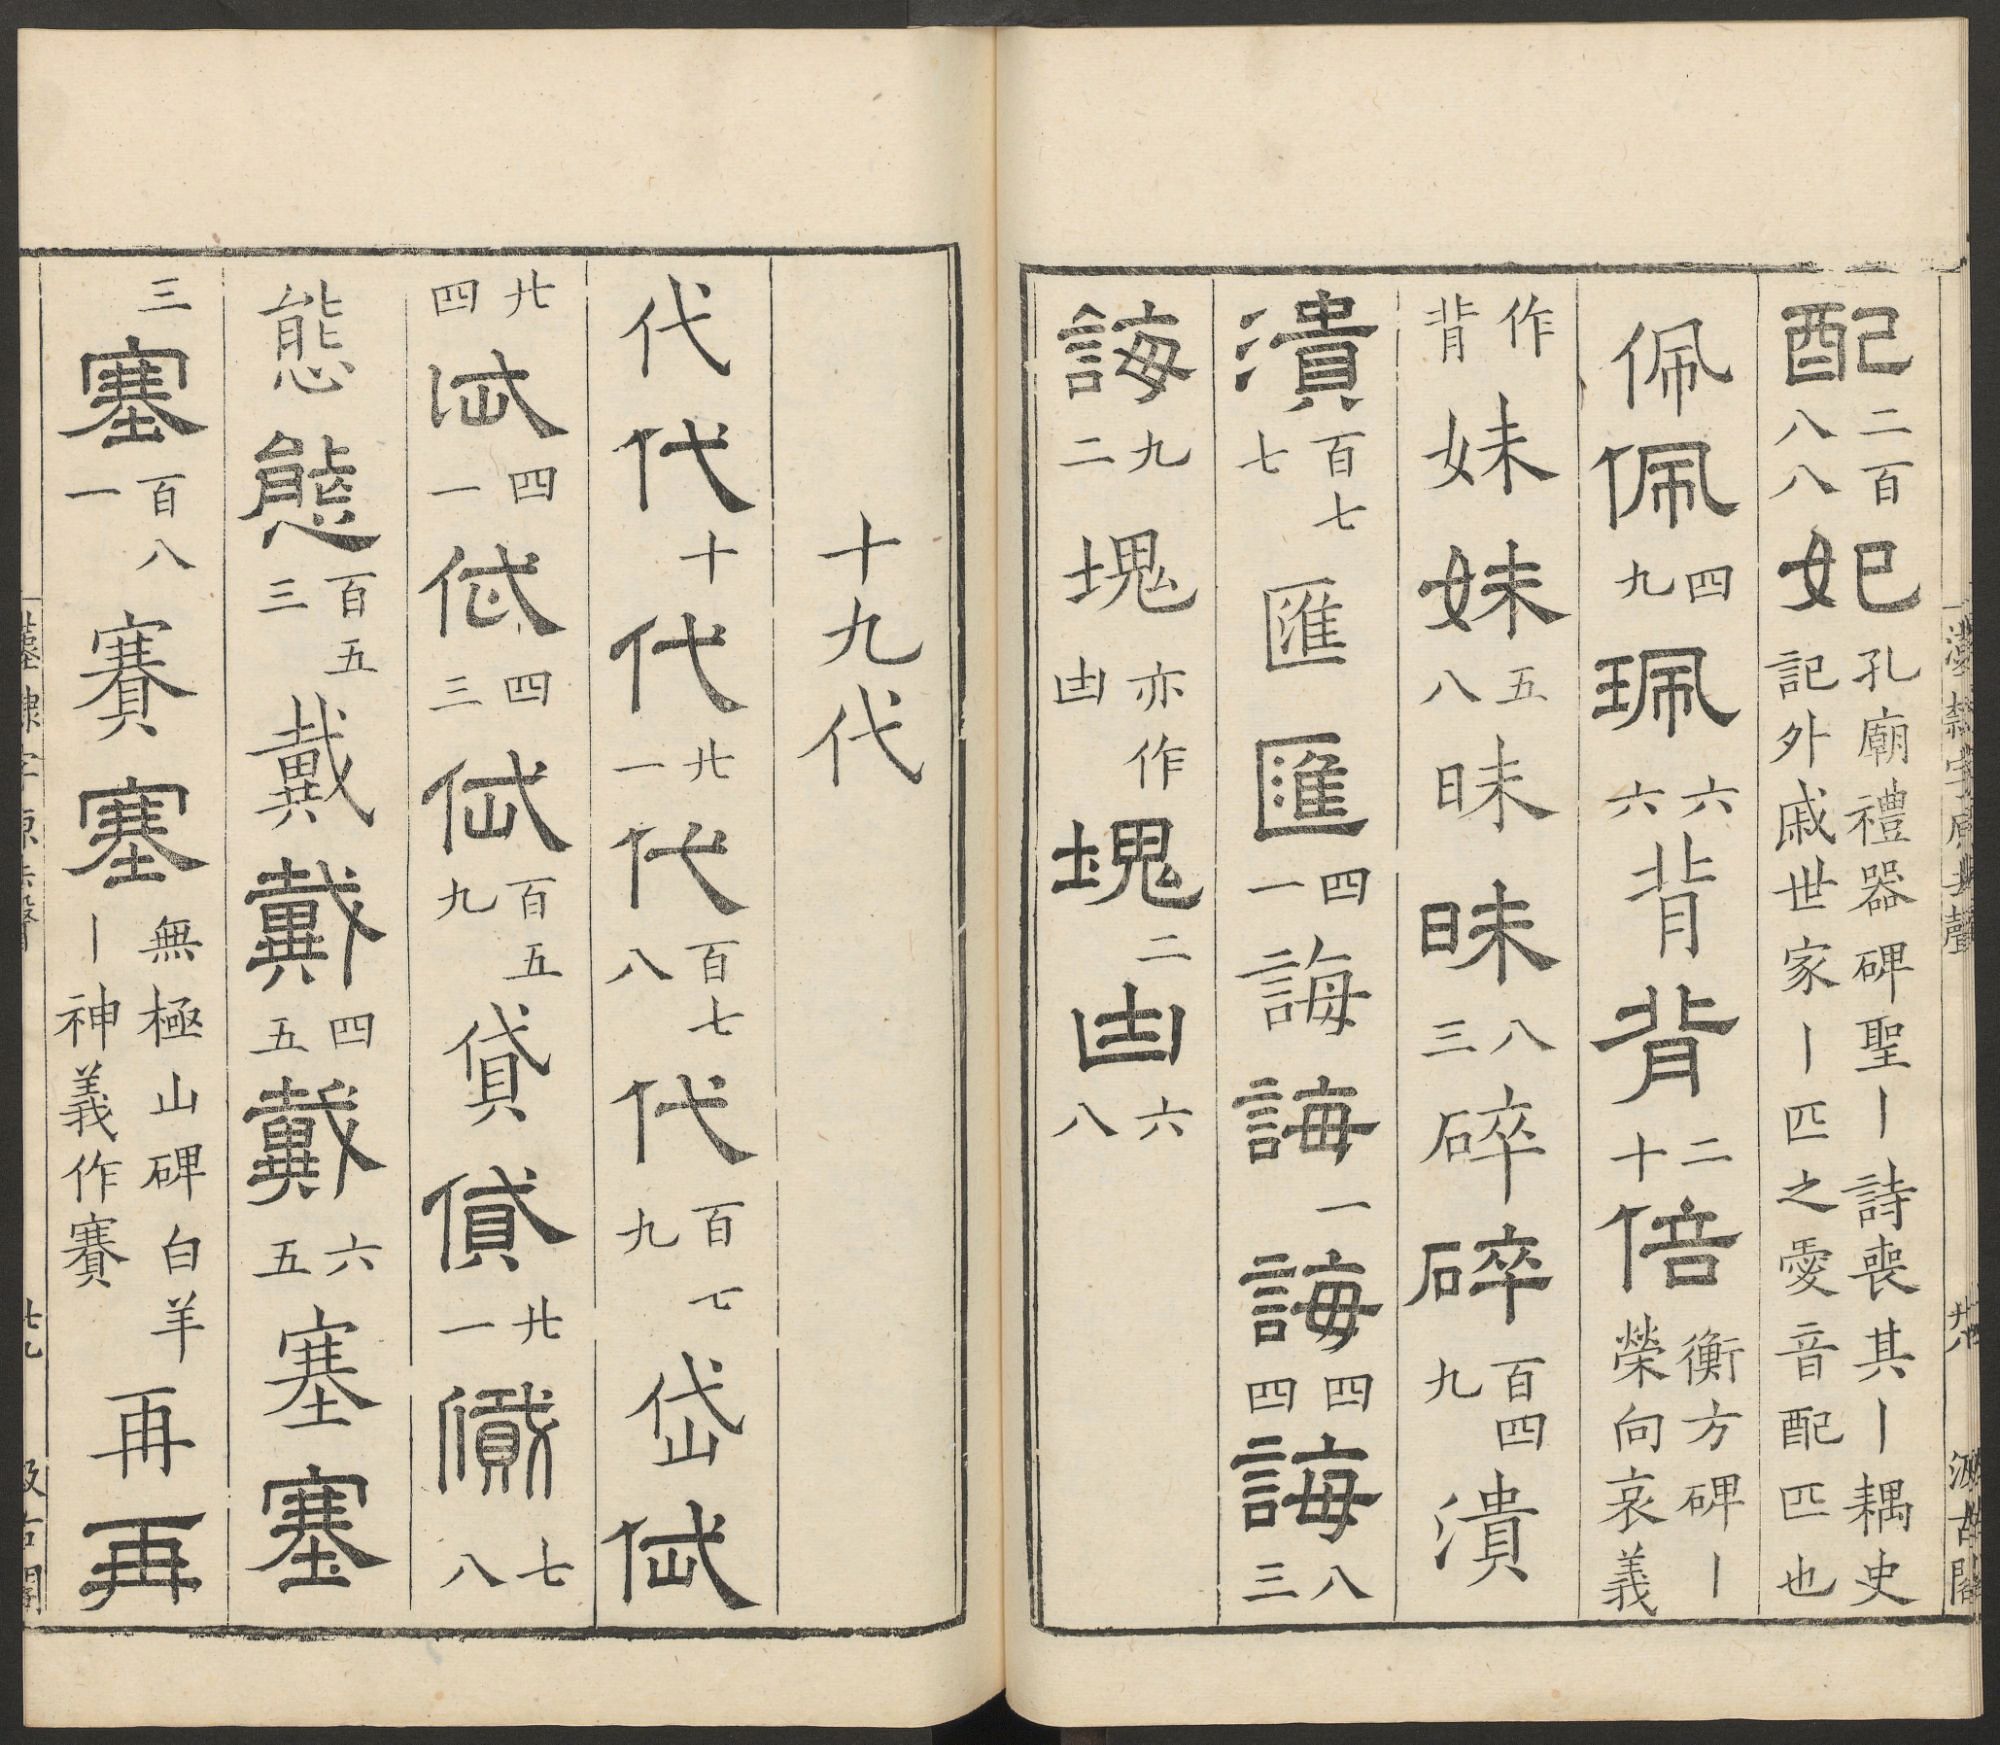 配二百八八妃孔廟禮器碑聖丨詩喪其丨耦史記外戚世家丨匹之愛音配匹也
佩佩四九珮六六背背二十倍衡方碑丨榮向哀義
作背妹妹五八昧昧八三碎碎百四九潰
潰百七七匯匯四一誨誨一誨四四誨八三
誨九二塊亦作凷塊二凷六八
漢隸字原去聲 廿八 汲古閣
十九代
代代十代廿一代百七八代百七九岱岱
廿四岱四一岱四三岱百五九貸貸廿一儥七八
態態百五三戴戴四五戴六五塞塞
三塞百八一賽塞無極山碑白羊丨神義作賽再再
漢隸字原去聲 廿九 汲古閣